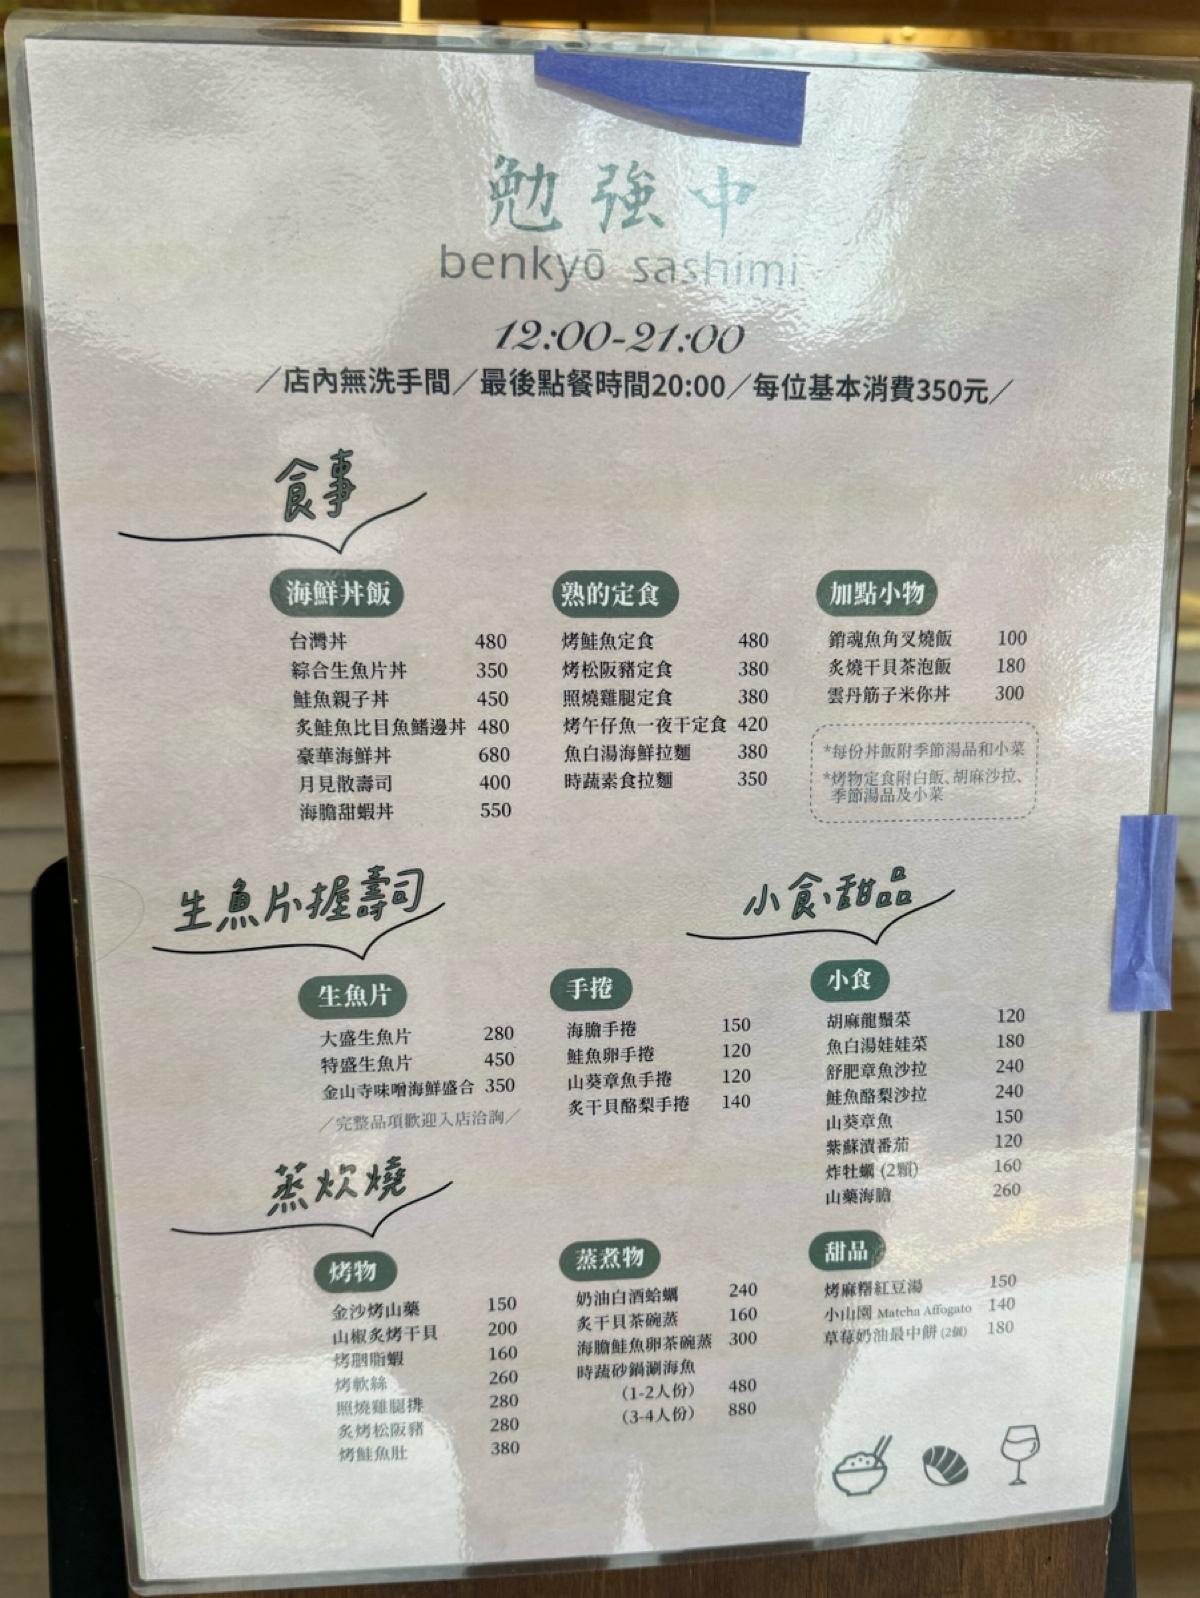 勉強中
benkyō sashimi
12:00-21:00
／店內無洗手間／最後點餐時間20:00／每位基本消費350元／
食事
海鮮丼飯
台灣丼 480
綜合生魚片丼 350
鮭魚親子丼 450
炙鮭魚比目魚鰭邊丼 480
豪華海鮮丼 680
月見散壽司 400
海膽甜蝦丼 550
熟的定食
烤鮭魚定食 480
烤松阪豬定食 380
照燒雞腿定食 380
烤午仔魚一夜干定食 420
魚白湯海鮮拉麵 380
時蔬素食拉麵 350
加點小物
銷魂魚角叉燒飯 100
炙燒干貝茶泡飯 180
雲丹筋子米你丼 300
*每份丼飯附季節湯品和小菜
*烤物定食附白飯、胡麻沙拉、
季節湯品及小菜
生魚片·握壽司
生魚片
大盛生魚片 280
特盛生魚片 450
金山寺味噌海鮮盛合 350
／完整品項歡迎入店洽詢／
手捲
海膽手捲 150
鮭魚卵手捲 120
山葵章魚手捲 120
炙干貝酪梨手捲 140
小食·甜品
小食
胡麻龍鬚菜 120
魚白湯娃娃菜 180
舒肥章魚沙拉 240
鮭魚酪梨沙拉 240
山葵章魚 150
紫蘇漬番茄 120
炸牡蠣 (2顆) 160
山藥海膽 260
蒸炊燒
烤物
金沙烤山藥 150
山椒炙烤干貝 200
烤胭脂蝦 160
烤軟絲 260
照燒雞腿排 280
炙烤松阪豬 280
烤鮭魚肚 380
蒸煮物
奶油白酒蛤蠣 240
炙干貝茶碗蒸 160
海膽鮭魚卵茶碗蒸 300
時蔬砂鍋涮海魚
（1-2人份） 480
（3-4人份） 880
甜品
烤麻糬紅豆湯 150
小山園 Matcha Affogato 140
草莓奶油最中餅 (2個) 180